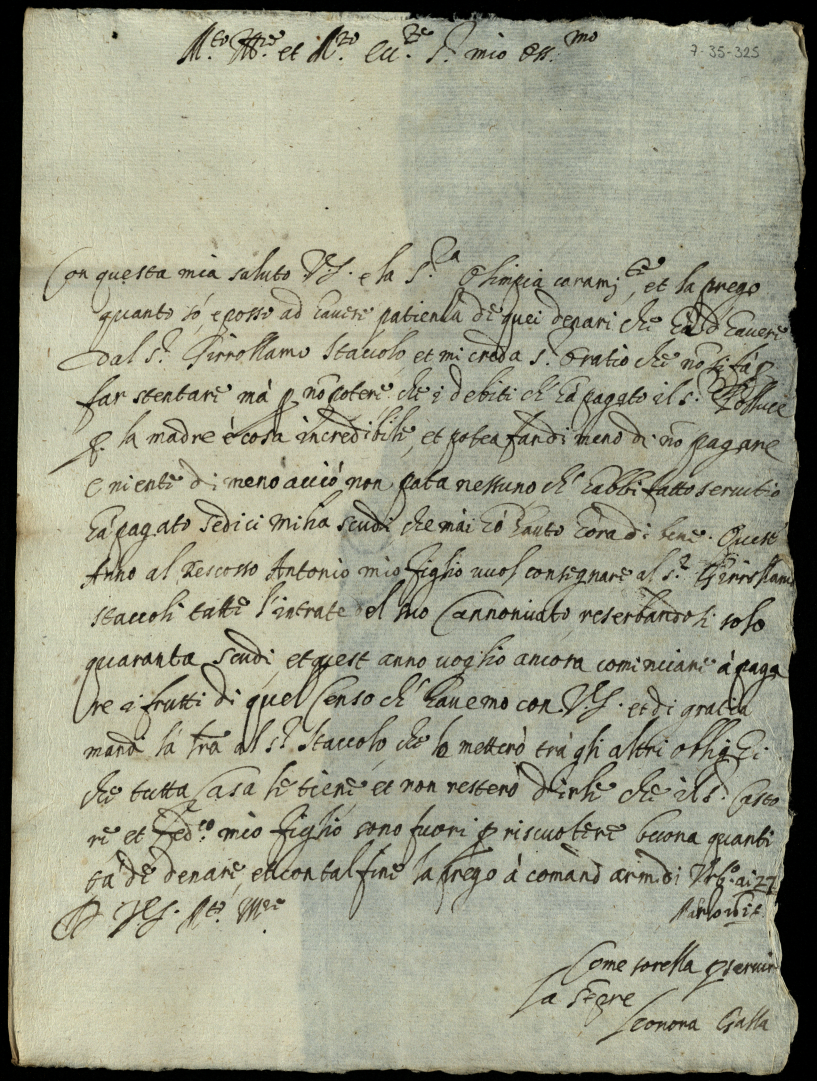 7-35-325
M.to Ill.re et M.to ecc.te S.r mio oss.mo
Con questa mia saluto V.S. e la S.ra Olimpia caram.te, et la prego
quanto sò, e posso ad havere patienza de quei denari che hà d'havere
dal s.r Girrollamo Staccolo, et mi creda s.r Oratio che nõ si fà p
far stentare mà p nõ potere che i debiti ch' hà pagato il s.r Polluce
p la madre è cosa incredibile, et potea far di meno di nõ pagare
e niente di meno acciò non pata nessuno ch' habbi fatto servitio
hà pagato sedici milia scudi che mài hò hauto hora di bene. Quest'
Anno al rescosso Antonio mio figlio vuol consegnare al s.r Girrollamo
staccoli tutte l'intrate del suo Cannonicato, reserbandosi solo
quaranta scudi, et quest'anno voglio ancora cominciare à paga
re i frutti di quel Censo ch' havemo con V.S. et di gratia
mandi là l'ra al s.r Staccolo, che lo metterò trà gli altri oblighi
che tutta Casa le tiene et non resterò dirle che il s.r Casto
re et Fed.co mio figlio sono fuori p riscuotere buona quanti
tà de denare, et con tal fine la prego à comãdarmi. di Urb.o ai 27
D V.S. M.to Ill.re
Marzo
Come sorella p servir
la sẽpre
Leonora Galla